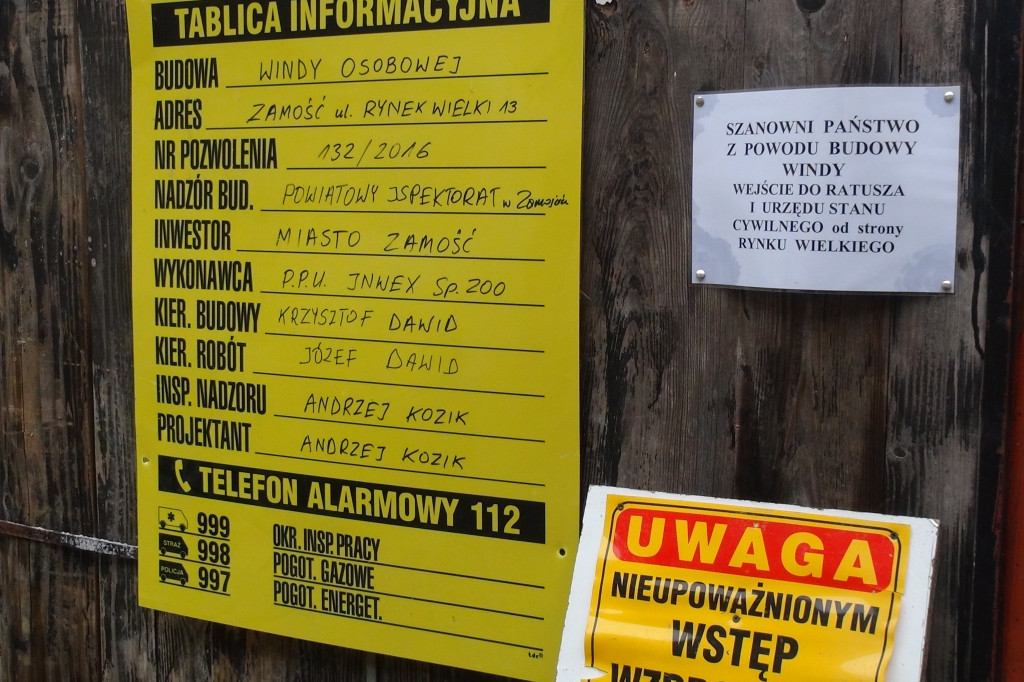 TABLICA INFORMACYJNA
BUDOWA WINDY OSOBOWEJ
ADRES ZAMOŚĆ ul. RYNEK WIELKI 13
NR POZWOLENIA 132/2016
NADZÓR BUD. POWIATOWY JSPEKTORAT w Zamościu
INWESTOR MIASTO ZAMOŚĆ
WYKONAWCA P.P.U. INWEX Sp. ZOO
KIER. BUDOWY KRZYSZTOF DAWID
KIER. ROBÓT JÓZEF DAWID
INSP. NADZORU ANDRZEJ KOZIK
PROJEKTANT ANDRZEJ KOZIK
TELEFON ALARMOWY 112
999
STRAŻ 998
POLICJA 997
OKR. INSP. PRACY
POGOT. GAZOWE
POGOT. ENERGET.
SZANOWNI PAŃSTWO
Z POWODU BUDOWY
WINDY
WEJŚCIE DO RATUSZA
I URZĘDU STANU
CYWILNEGO od strony
RYNKU WIELKIEGO
UWAGA
NIEUPOWAŻNIONYM
WSTĘP